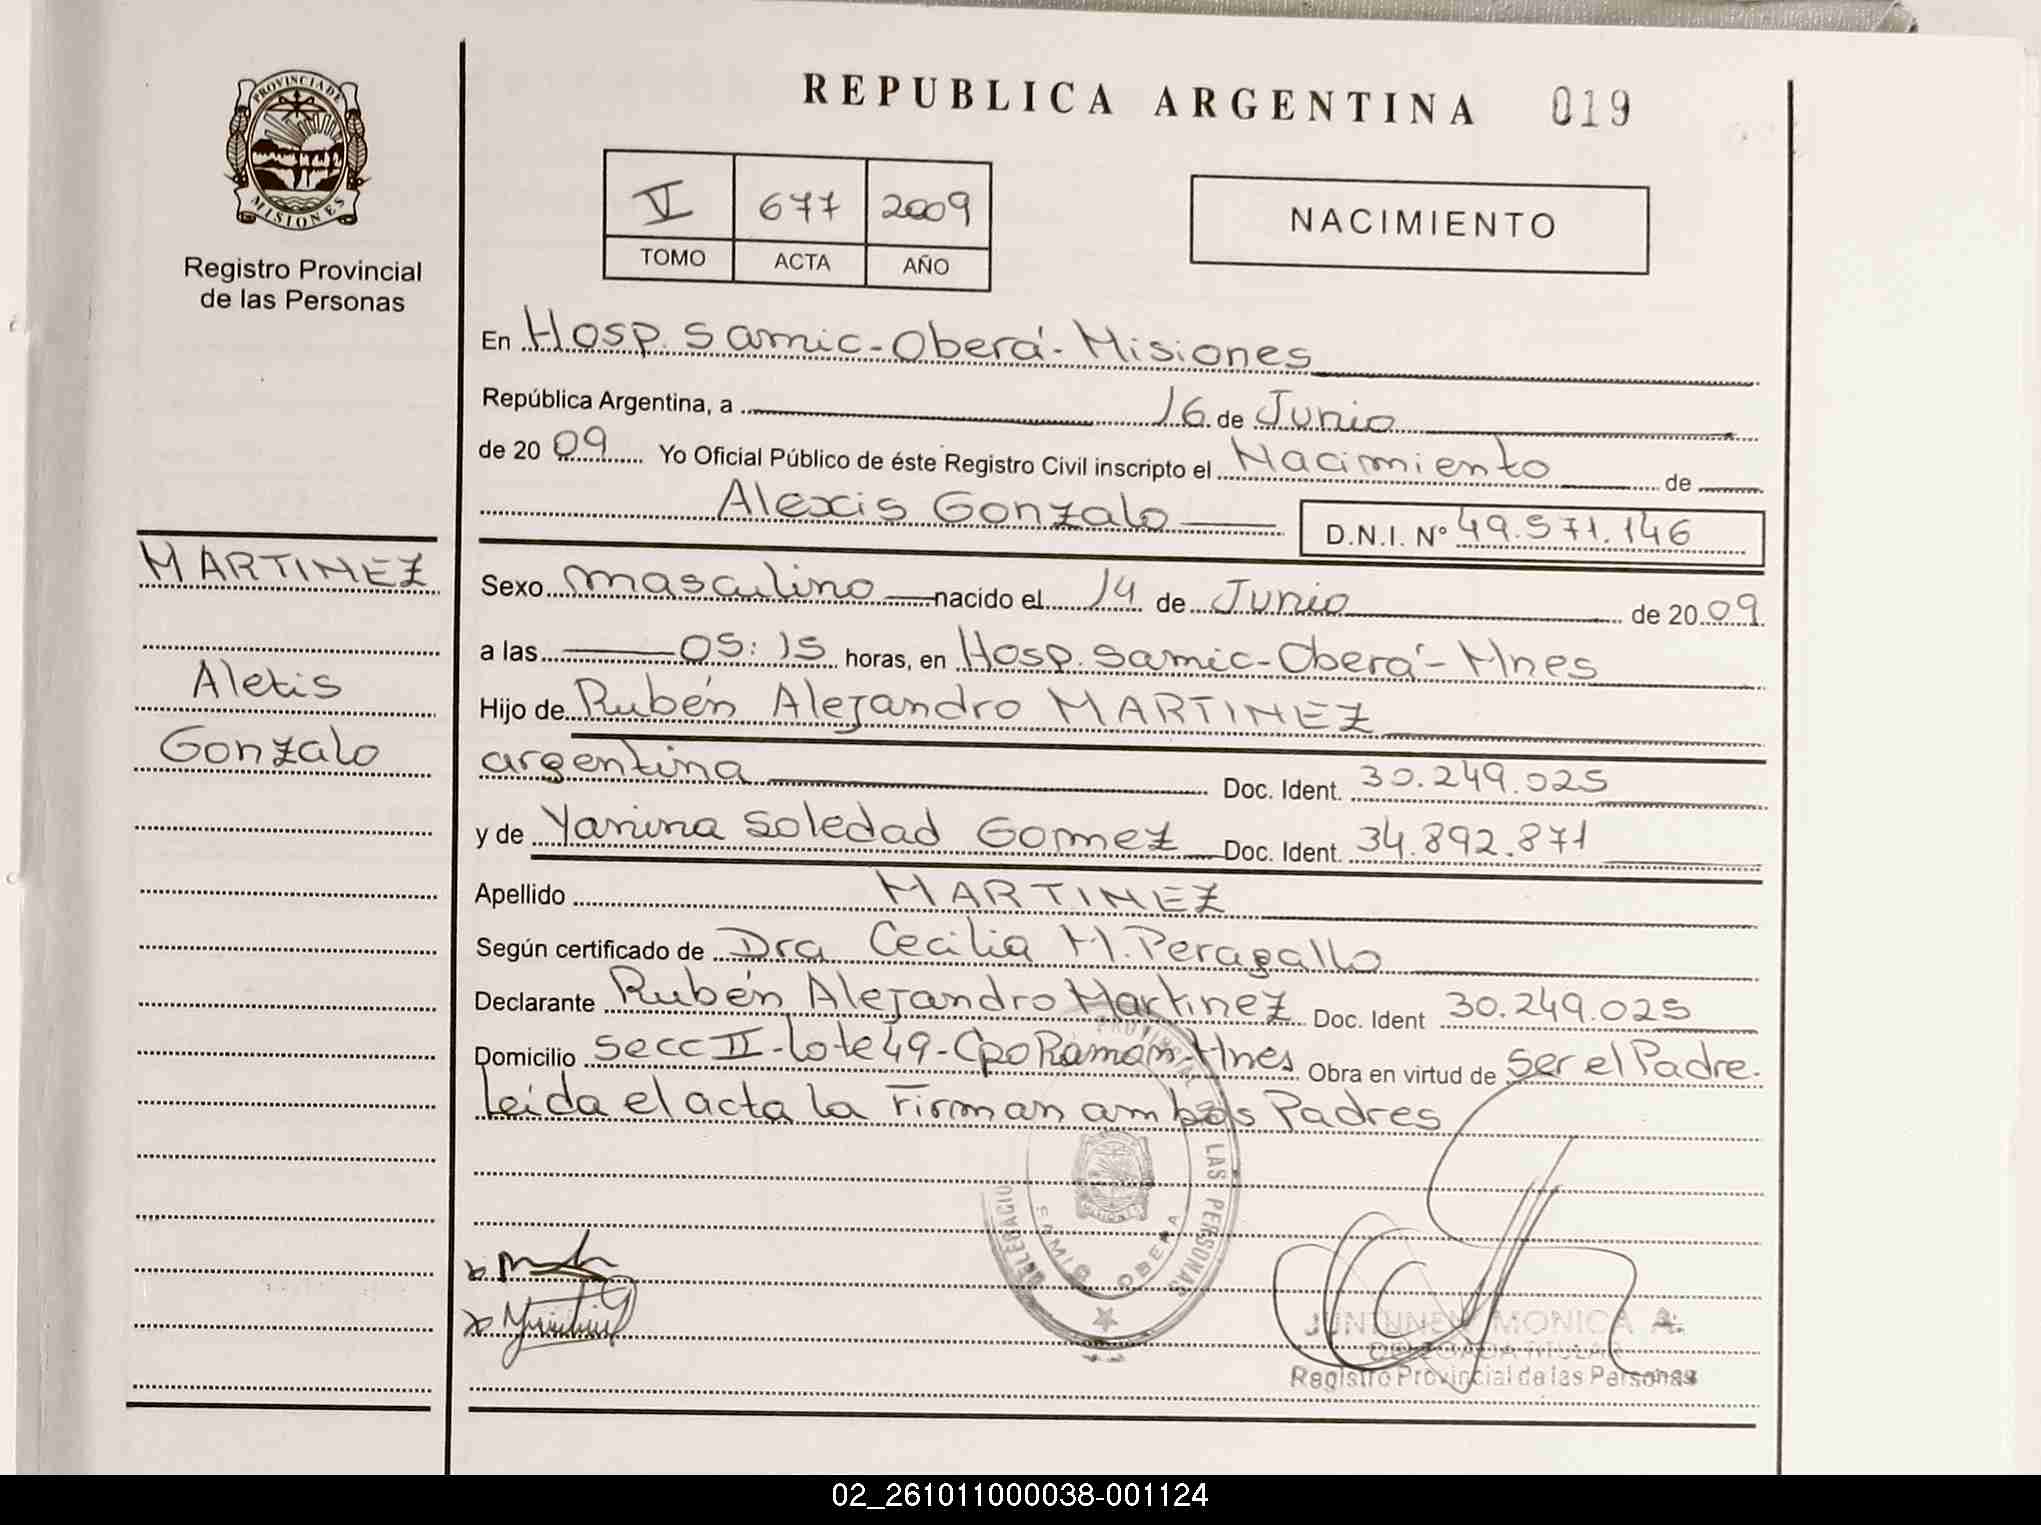 PROVINCIA DE
MISIONES
Registro Provincial
de las Personas
REPUBLICA ARGENTINA 019
VI 677 2009
TOMO ACTA AÑO
NACIMIENTO
En Hosp. Samic-Oberá-Misiones
República Argentina, a 16 de Junio
de 2009 Yo Oficial Público de éste Registro Civil inscripto el Nacimiento de
Alexis Gonzalo D.N.I. Nº 49.571.146
MARTINEZ
Alexis
Gonzalo
Sexo masculino nacido el 14 de Junio de 2009
a las 05:15 horas, en Hosp. Samic-Oberá-Mnes
Hijo de Rubén Alejandro MARTINEZ
argentina Doc. Ident. 30.249.025
y de Yanina Soledad Gomez Doc. Ident. 34.892.871
Apellido MARTINEZ
Según certificado de Dra Cecilia M. Peragallo
Declarante Rubén Alejandro Martinez Doc. Ident 30.249.025
Domicilio Secc II-Lote 49-Cpo Ramon-Mnes Obra en virtud de Ser el Padre.
Leida el acta la Firman ambos Padres
PROVINCIAL LAS PERSONAS
OBERA
MONICA A.
Registro Provincial de las Personas
02_261011000038-001124